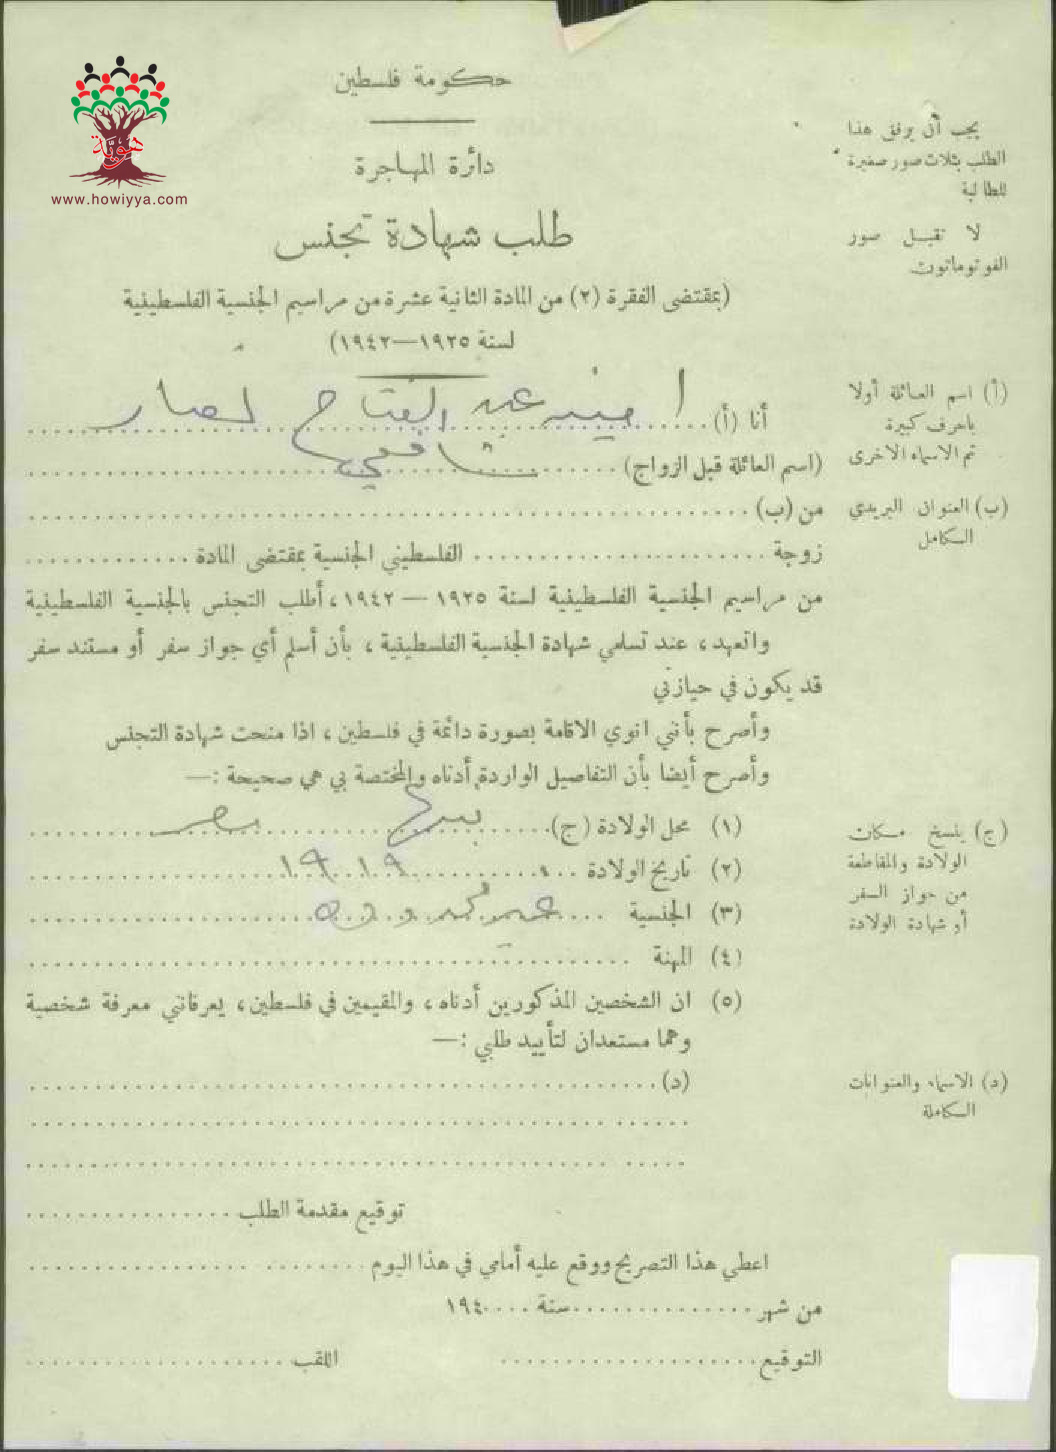 هوية
www.howiyya.com
حكومة فلسطين
دائرة المهاجرة
طلب شهادة تجنس
(بمقتضى الفقرة (٢) من المادة الثانية عشرة من مراسيم الجنسية الفلسطينية
لسنة ١٩٢٥—١٩٤٢)
يجب أن يرفق هذا
الطلب بثلاث صور صغيرة
للطالبة
لا تقبل صور
الفوتوماتون
(أ) اسم العائلة أولا
باحرف كبيرة
ثم الاسماء الاخرى
أنا (أ) امينه عبد الفتاح
(اسم العائلة قبل الزواج) شافعي
(ب) العنوان البريدي
الكامل
من (ب)
زوجة الفلسطيني الجنسية بمقتضى المادة
من مراسيم الجنسية الفلسطينية لسنة ١٩٢٥ — ١٩٤٢، أطلب التجنس بالجنسية الفلسطينية
واتعهد، عند تسلمي شهادة الجنسية الفلسطينية، بأن أسلم أي جواز سفر أو مستند سفر
قد يكون في حيازتي
وأصرح بأنني انوي الاقامة بصورة دائمة في فلسطين، اذا منحت شهادة التجنس
وأصرح أيضا بأن التفاصيل الواردة أدناه والمختصة بي هي صحيحة :—
(١) محل الولادة (ج) مصر
(٢) تاريخ الولادة ١٩١٩
(٣) الجنسية
(٤) المهنة
(ج) يلسخ مكان
الولادة والمقاطعة
من جواز السفر
أو شهادة الولادة
(٥) ان الشخصين المذكورين أدناه، والمقيمين في فلسطين، يعرفانني معرفة شخصية
وهما مستعدان لتأييد طلبي :—
(د)
(د) الاسماء والعنوانات
الكاملة
توقيع مقدمة الطلب
اعطي هذا التصريح ووقع عليه أمامي في هذا اليوم
من شهر سنة ١٩٤
التوقيع اللقب